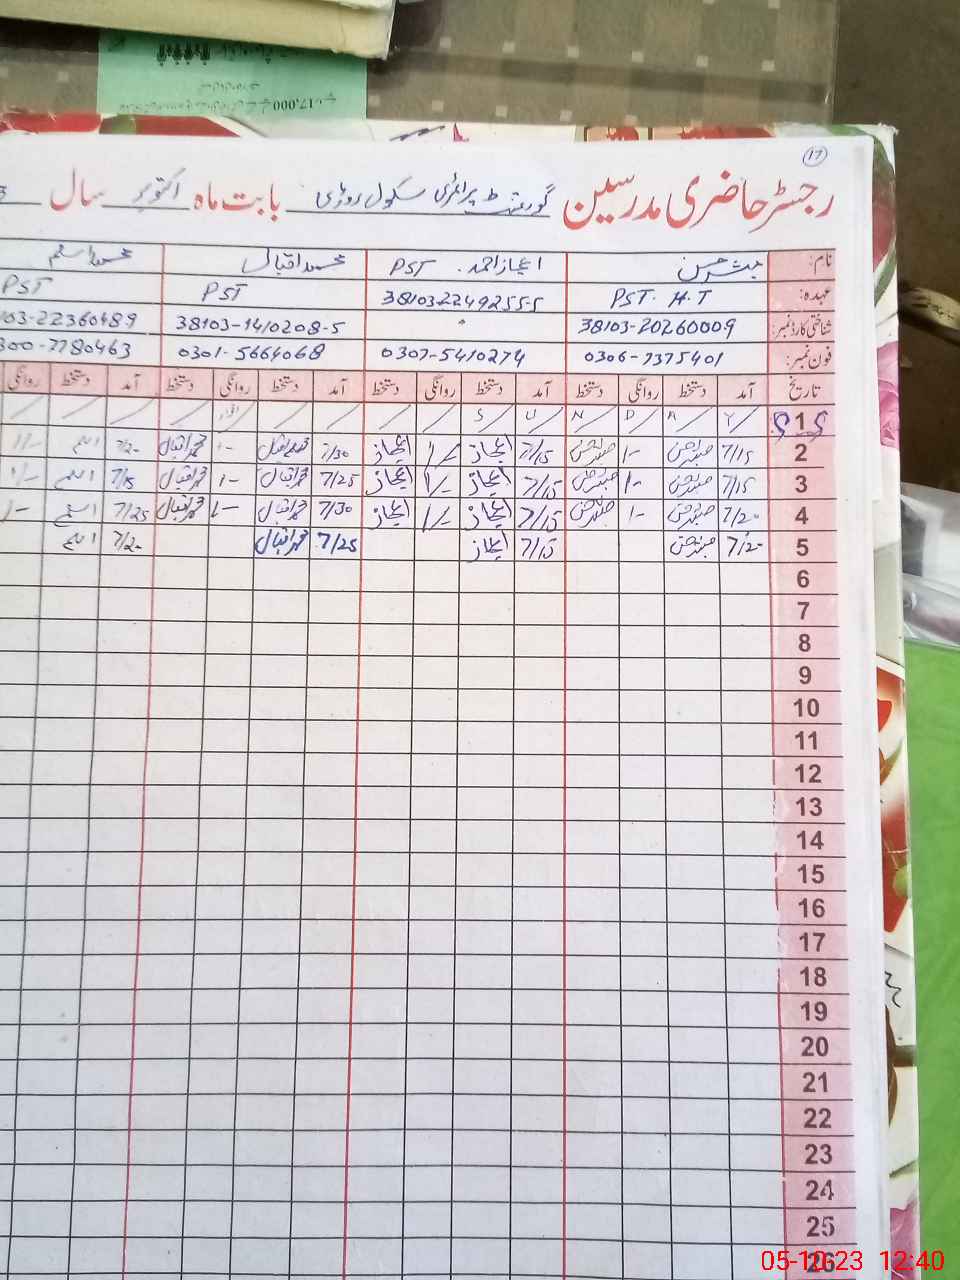 17,000
17
رجسٹر حاضری مدرسین گورنمنٹ پرائمری سکول روڑی بابت ماہ اکتوبر سال
نام: مبشر حسن اعجاز احمد PST محمد اقبال محمد اسلم
عہدہ: PST. H.T 381032249255-5 PST PST
شناختی کارڈ نمبر: 38103-20260009 38103-1410208-5 103-22360489
فون نمبر: 0306-7375401 0307-5410274 0301-5664068 300-7780463
تاریخ آمد دستخط روانگی دستخط آمد دستخط روانگی دستخط آمد دستخط روانگی دستخط آمد دستخط روانگی
1 Y A D N U S اتوار
2 7/15 1/- 7/15 اعجاز 1/- اعجاز 7/30 محمد اقبال 1/- محمد اقبال 7/20 اسلم 1/-
3 7/15 1/- 7/15 اعجاز 1/- اعجاز 7/25 محمد اقبال 1/- محمد اقبال 7/15 اسلم 1/-
4 7/20 1/- 7/15 اعجاز 1/- اعجاز 7/30 محمد اقبال 1/- محمد اقبال 7/25 اسلم 1/-
5 7/20 7/15 اعجاز 7/25 محمد اقبال 7/20 اسلم
6
7
8
9
10
11
12
13
14
15
16
17
18
19
20
21
22
23
24
25
26
05-10-23 12:40